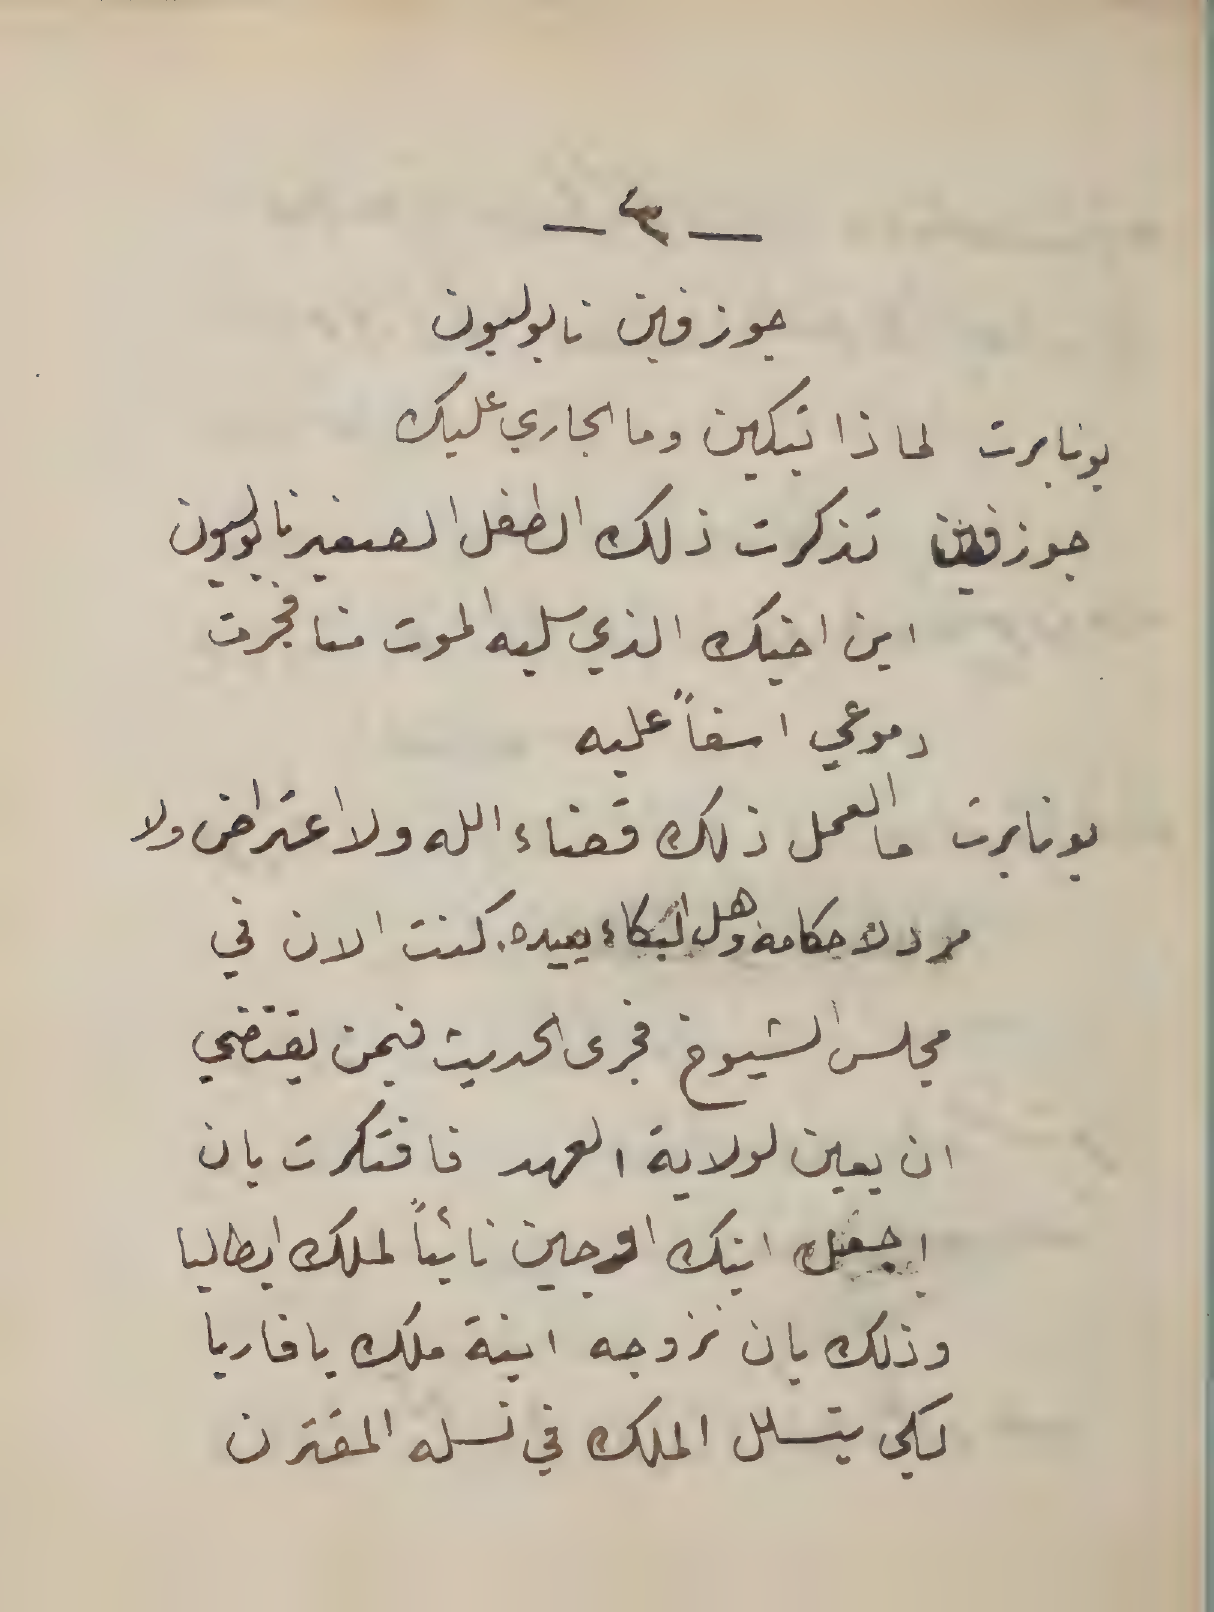 — ٣ —
جوزفين نابوليون
بونابرت لماذا تبكين وما الجاري عليك
جوزفين تذكرت ذلك الطفل الصغير نابوليون
ابن اخيك الذي سلبه الموت منا ففجرت
دموعي اسفاً عليه
بونابرت ما العمل ذلك قضاء الله ولا اعتراض ولا
مرد لاحكامه وهل البكاء يعيده. كنت الان في
مجلس الشيوخ فجرى الحديث فيمن يقتضي
ان يعين لولاية العهد فافتكرت بان
اجعل ابنك اوجين نائباً لملك ايطاليا
وذلك بان نزوجه ابنة ملك بافاريا
لكي يتسلل الملك في نسله المقترن